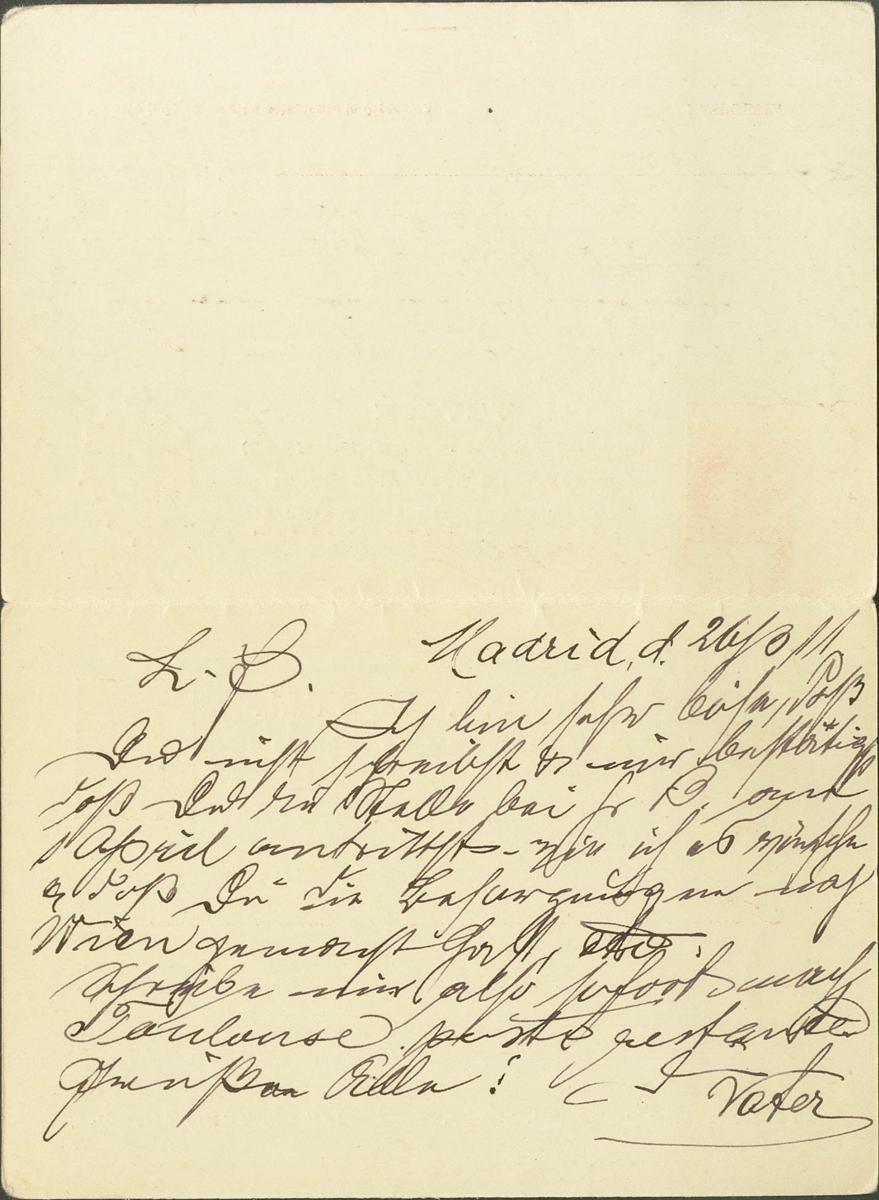 Madrid, d. 26/3 11
L. P.
Ich bin sehr böse, daß
Du nicht schreibst & mir bestätigst
daß Du die Stelle bei H. P. am
1 April antrittst - wie ich es wünsche
& daß Du die Besorgungen nach
Wien gemacht hast, etc.
Schreibe mir also sofort nach
Toulouse poste restante
Grüße an Alle! D. Vater